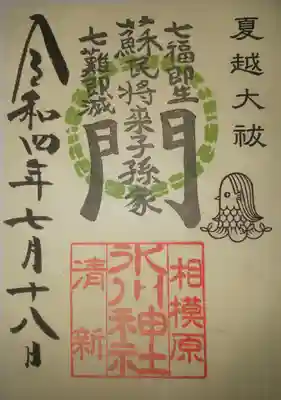 夏越大祓
七福即生
蘇民将来子孫家
七難即滅
門
相模原
氷川神社
清新
令和四年七月十八日